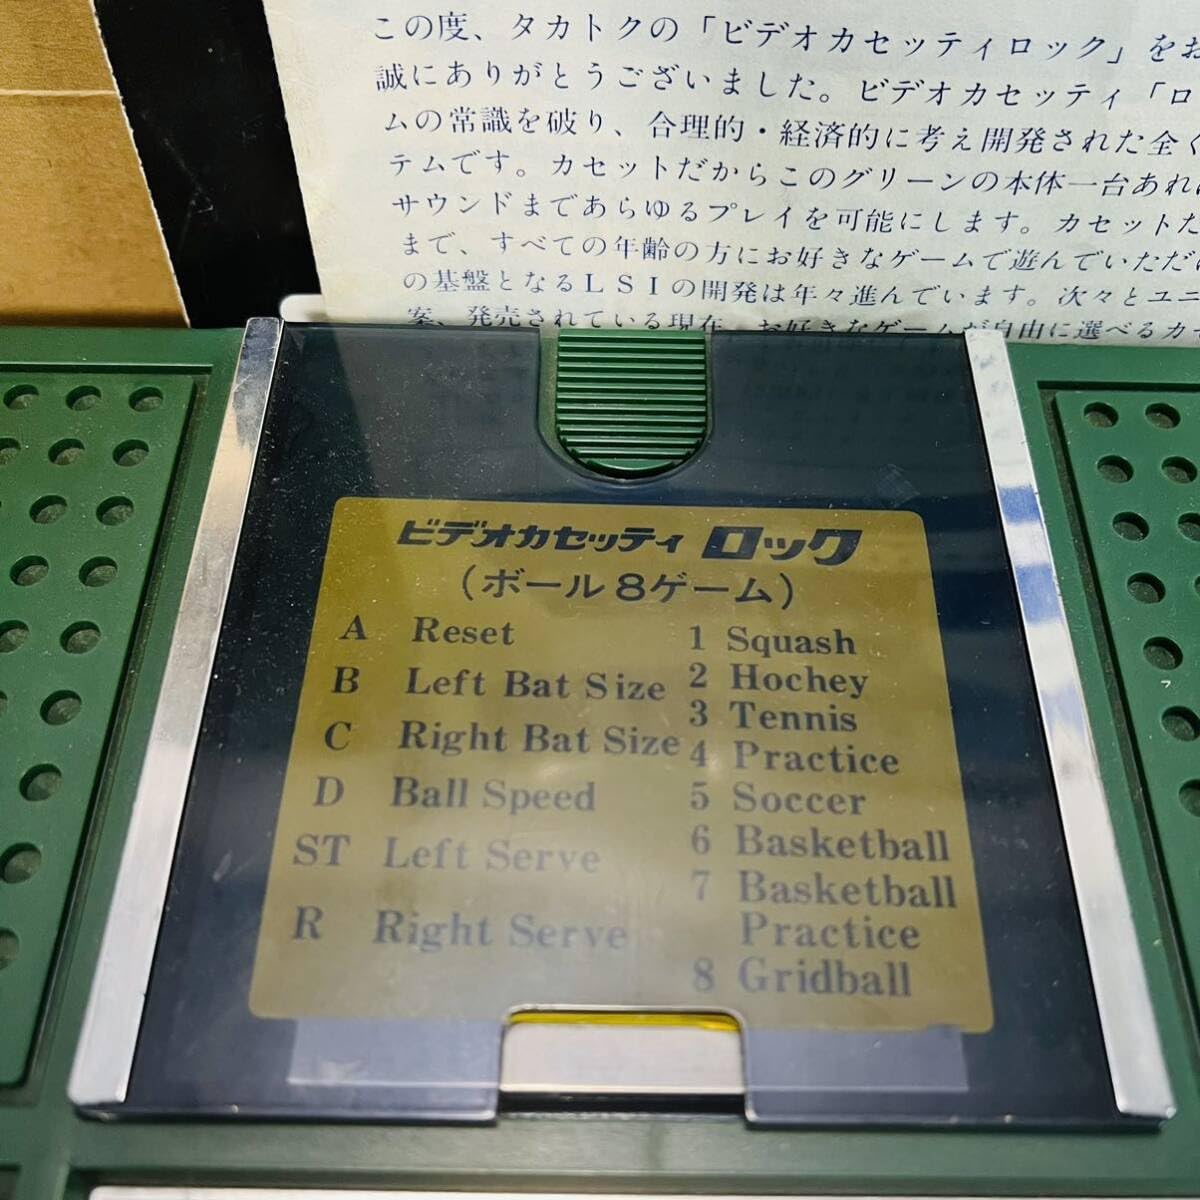 この度、タカトクの「ビデオカセッティロック」をお
誠にありがとうございました。ビデオカセッティ「ロ
ムの常識を破り、合理的・経済的に考え開発された全く
テムです。カセットだからこのグリーンの本体一台あれば
サウンドまであらゆるプレイを可能にします。カセットだ
まで、すべての年齢の方にお好きなゲームで遊んでいただけ
の基盤となるLSIの開発は年々進んでいます。次々とユニ
案、発売されている現在、お好きなゲームが自由に選べるカセ
ビデオカセッティ ロック
(ボール8ゲーム)
A Reset
B Left Bat Size
C Right Bat Size
D Ball Speed
ST Left Serve
R Right Serve
1 Squash
2 Hochey
3 Tennis
4 Practice
5 Soccer
6 Basketball
7 Basketball
Practice
8 Gridball